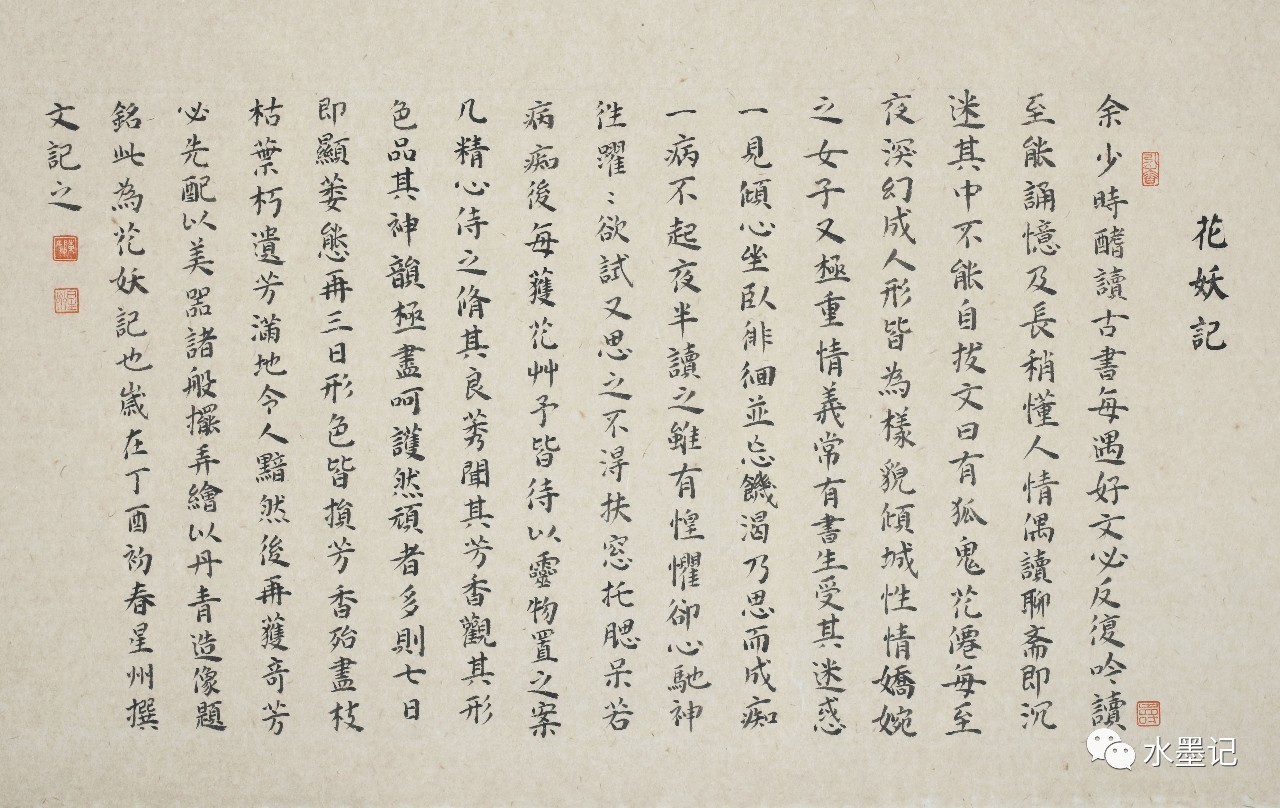 花妖記
余少時嗜讀古書每遇好文必反復吟讀
至能誦憶及長稍懂人情偶讀聊斋即沉
迷其中不能自拔文曰有狐鬼花僊每至
夜深幻成人形皆為樣貌傾城性情嬌婉
之女子又極重情義常有書生受其迷惑
一見傾心坐臥徘徊並忘饑渴乃思而成痴
一病不起夜半讀之雖有惶懼卻心馳神
往躍〻欲試又思之不得扶窓托腮呆若
病痴後每獲花艸予皆待以靈物置之案
几精心侍之脩其良莠聞其芳香觀其形
色品其神韻極盡呵護然頑者多則七日
即顯萎態再三日形色皆損芳香殆盡枝
枯葉朽遺芳滿地令人黯然後再獲奇芳
必先配以美器諸般擺弄繪以丹青造像題
銘此為花妖記也歲在丁酉初春星州撰
文記之
水墨记